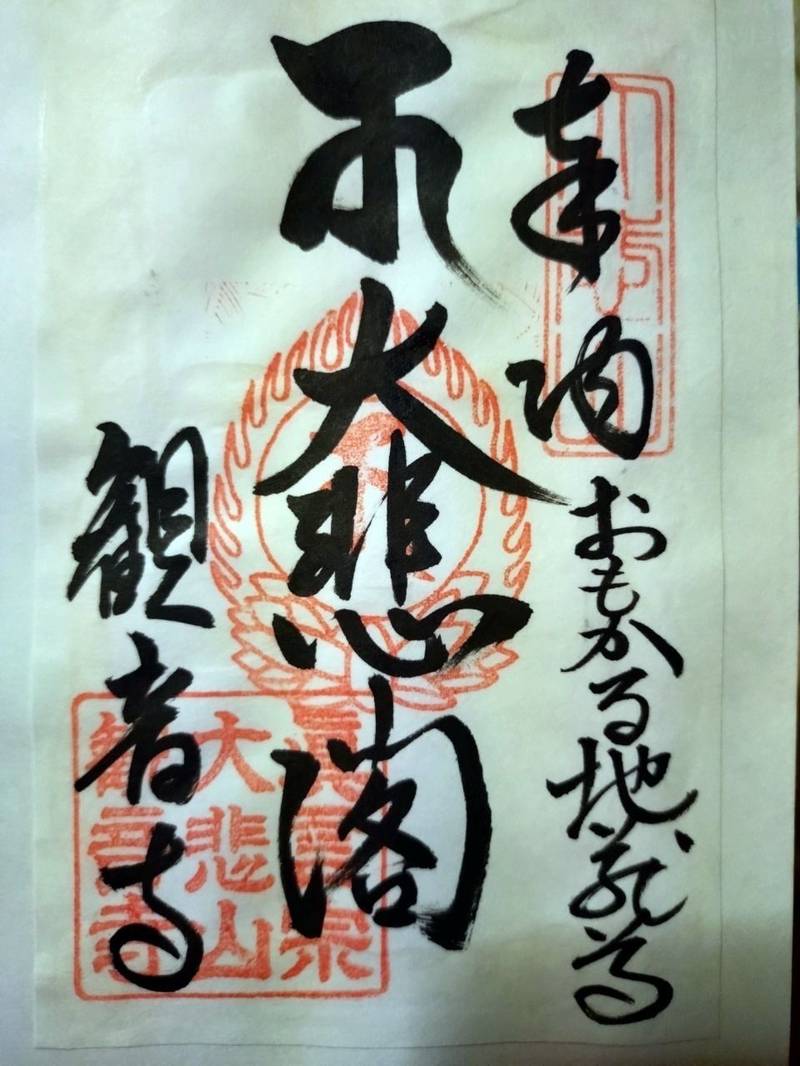 奉納
おもかる地蔵尊
大悲閣
観音寺
眞言宗
大悲山
観音寺